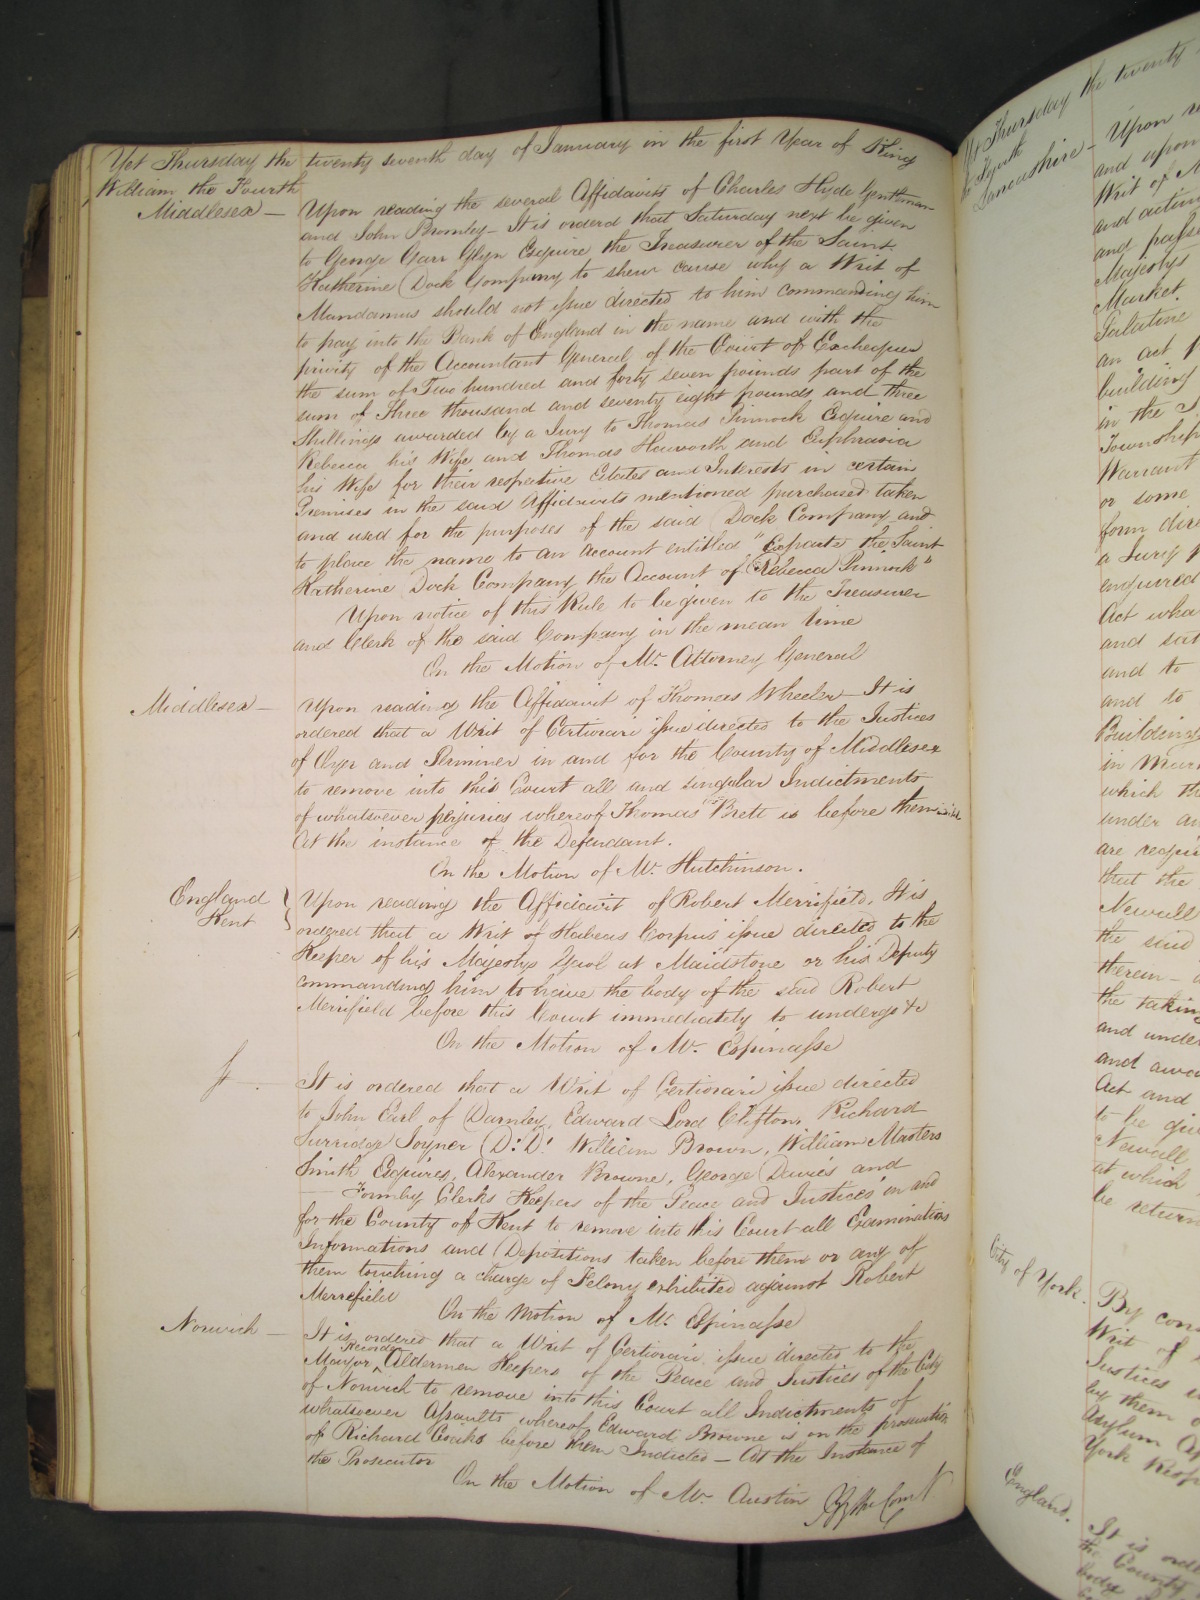 Yet Thursday the twenty seventh day of January in the first Year of King
William the Fourth
Middlesex — Upon reading the several Affidavits of Charles Hyde Gentleman
and John Bromley — It is orderd that Saturday next be given
to George Carr Glyn Esquire the Treasurer of the Saint
Katherine Dock Company to shew cause why a Writ of
Mandamus should not issue directed to him commanding him
to pay into the Bank of England in the name and with the
privity of the Accountant General of the Court of Exchequer
the sum of Two hundred and forty seven pounds part of the
sum of Three thousand and seventy eight pounds and three
Shillings awarded by a Jury to Thomas Pinnock Esquire and
Rebecca his Wife and Thomas Haworth and Euphrasia
his Wife for their respective Estates and Interests in certain
Premises in the said Affidavits mentioned purchased taken
and used for the purposes of the said Dock Company and
to place the name to an account entitled "Exparte the Saint
Katherine Dock Company the Account of Rebecca Pinnock"
Upon notice of this Rule to be given to the Treasurer
and Clerk of the said Company in the mean time
On the Motion of Mr. Attorney General
Middlesex — Upon reading the Affidavit of Thomas Wheeler — It is
ordered that a Writ of Certiorari issue directed to the Justices
of Oyer and Terminer in and for the County of Middlesex
to remove into this Court all and singular Indictments
of whatsoever perjuries whereof Thomas Brett is before them
At the instance of the Defendant.
On the Motion of Mr. Hutchinson.
England
Kent
Upon reading the Affidavit of Robert Merrifield. It is
ordered that a Writ of Habeas Corpus issue directed to the
Keeper of his Majestys Gaol at Maidstone or his Deputy
commanding him to have the body of the said Robert
Merrifield before this Court immediately to undergo &c
On the Motion of Mr. Espinasse
It is ordered that a Writ of Certiorari issue directed
to John Earl of Darnley, Edward Lord Clifton, Richard
Surridge Joyner D.D. William Brown, William Masters
Smith Esquires, Alexander Browne, George Davies and
— Formby Clerks Keepers of the Peace and Justices in and
for the County of Kent to remove into this Court all Examinations
Informations and Depositions taken before them or any of
them touching a charge of Felony exhibited against Robert
Merrefield
On the Motion of Mr. Espinasse
Norwich — It is ordered that a Writ of Certiorari issue directed to the
Mayor Recorder Aldermen Keepers of the Peace and Justices of the City
of Norwich to remove into this Court all Indictments of
whatsoever Assaults whereof Edward Browne is on the prosecution
of Richard Coaks before them Indicted — At the Instance of
the Prosecutor
On the Motion of Mr. Austin By the Court
Yet Thursday the twenty
Lancashire — Upon
and upon
Writ of
and
and
Majestys
Market.
Palatine
an act
building
in the
Township
Warrant
or some
form
a Jury
enquired
Act
and
and to
and to
Buildings
in
which
under
are
that the
Newall
the said
therein —
the taking
and under
and
Act and
to be
Newall
at which
be
City of York. By
Writ of
Justices
by them
Asylum
York
England. It is
the County
body